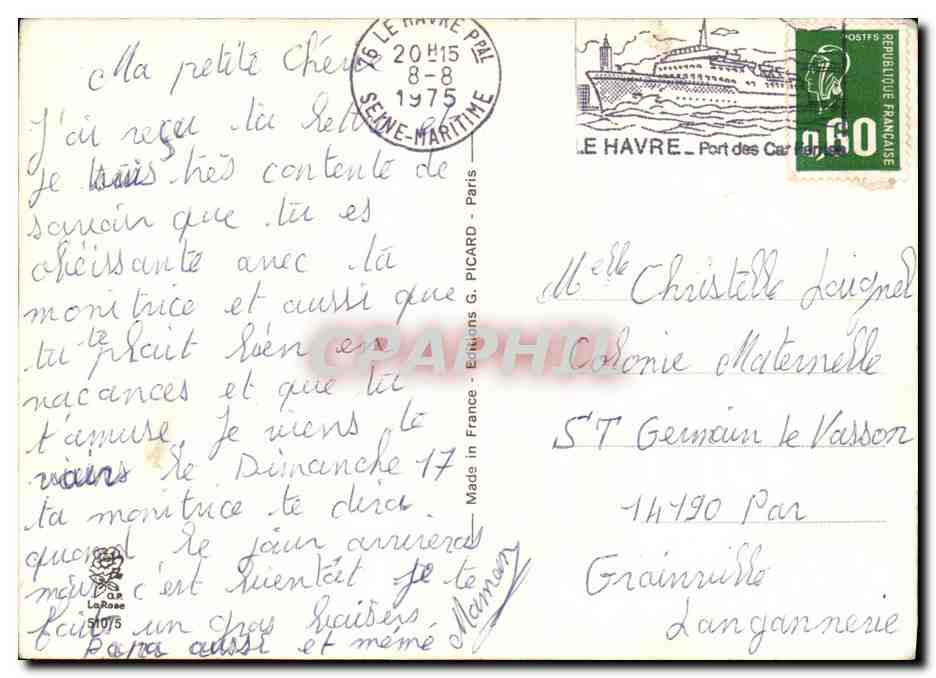 Ma petite Chérie
J'ai reçu ta lettre et
je suis très contente de
savoir que tu es
obéissante avec ta
monitrice et aussi que
tu te plait bien en
vacances et que tu
t'amuse. Je viens te
voir le Dimanche 17
ta monitrice te dira
quand le jour arriveras
mais c'est bientôt je te
fais un gros baisers
Papa aussi et mémé
Maman
76 LE HAVRE PPAL
20H15
8-8
1975
SEINE-MARITIME
LE HAVRE_ Port des Car Ferries
POSTES
REPUBLIQUE FRANÇAISE
0,60
Made in France - Editions G. PICARD - Paris
CPAPHIL
Melle Christelle Loignel
Colonie Maternelle
ST Germain le Vasson
14190 Par
Grainville
Langannerie
O.P.
La Rose
510/5